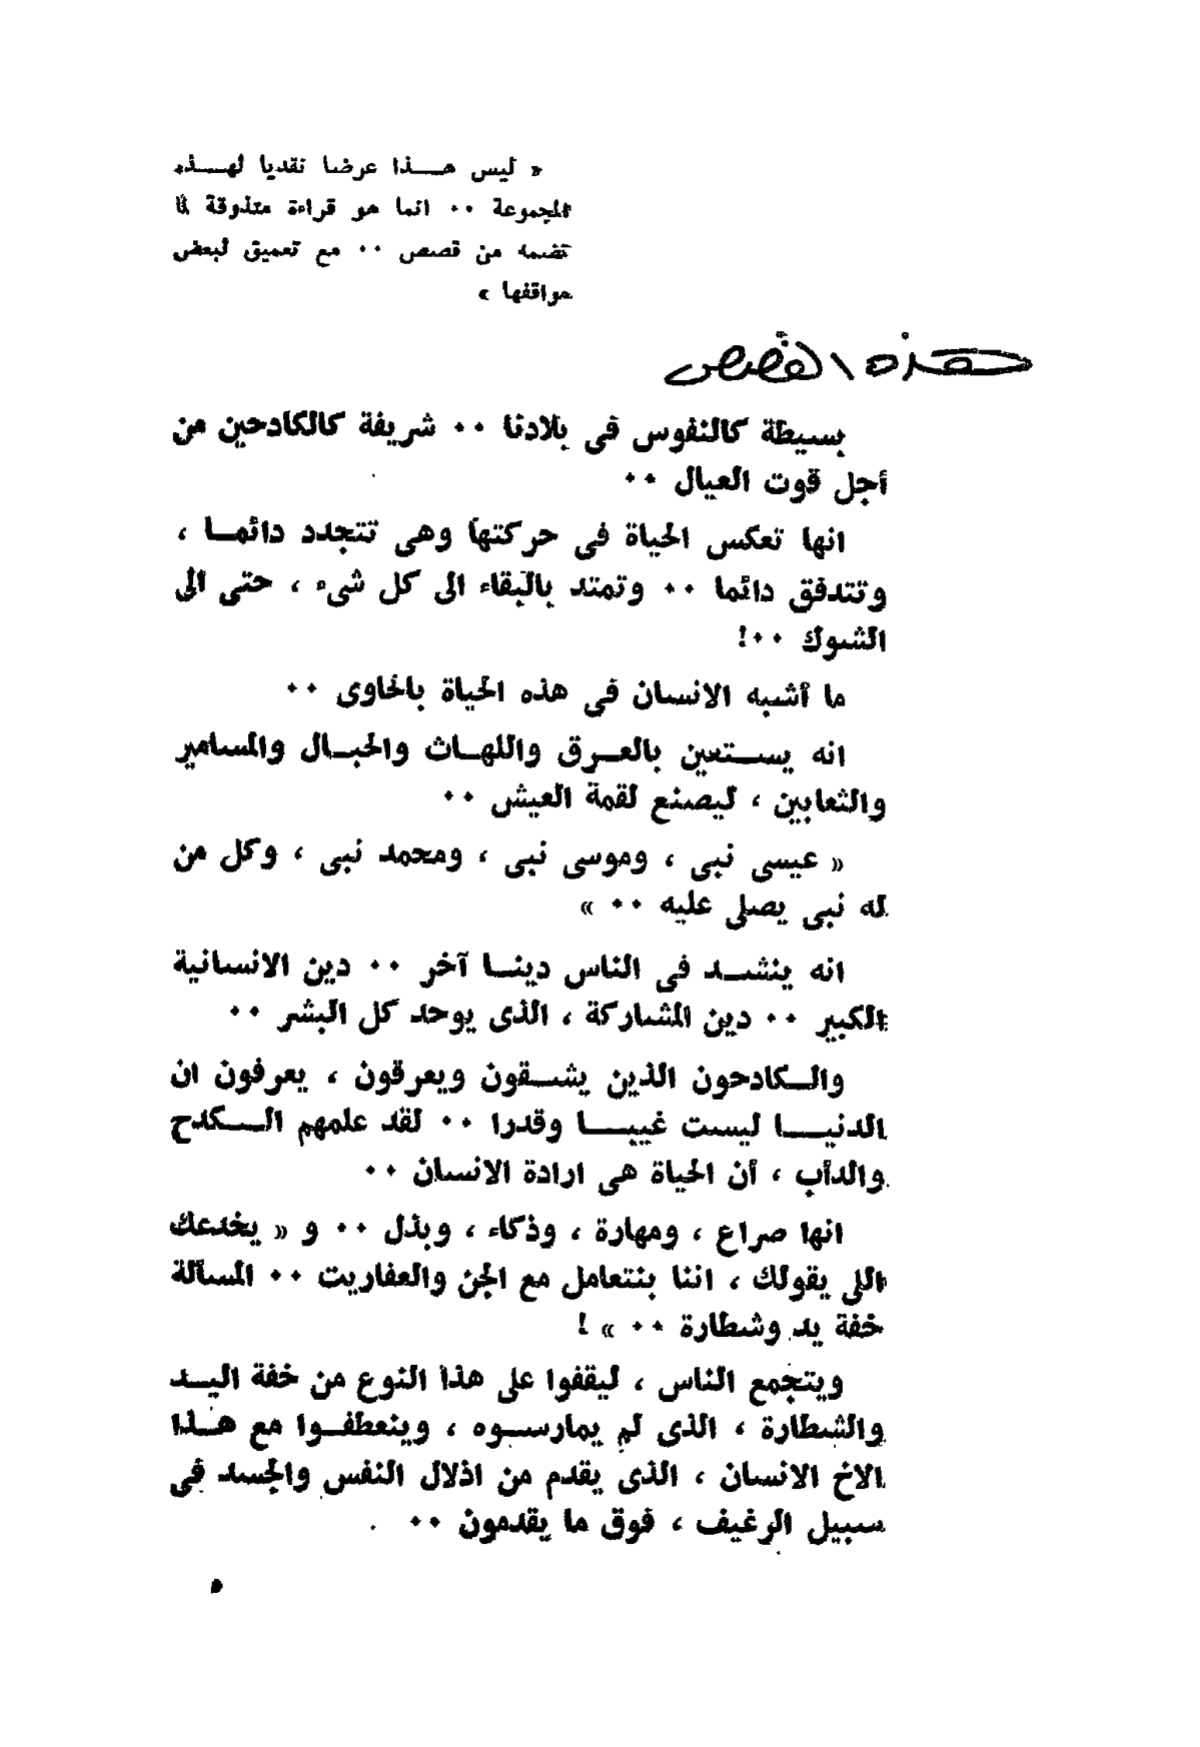 « ليس هـــذا عرضا نقديا لهـــذه
المجموعة ٠٠ انما هو قراءة متذوقة لما
تضمه من قصص ٠٠ مع تعميق لبعض
مواقفها »
هذه القصص
بسيطة كالنفوس فى بلادنا ٠٠ شريفة كالكادحين من
أجل قوت العيال ٠٠
انها تعكس الحياة فى حركتها وهى تتجدد دائمـا ،
وتتدفق دائما ٠٠ وتمتد بالبقاء الى كل شىء ، حتى الى
الشوك ٠٠!
ما أشبه الانسان فى هذه الحياة بالحاوى ٠٠
انه يســتعين بالعــرق واللهــاث والحبــال والمسامير
والثعابين ، ليصنع لقمة العيش ٠٠
« عيسى نبى ، وموسى نبى ، ومحمد نبى ، وكل من
له نبى يصلى عليه ٠٠ »
انه ينشــد فى الناس دينــا آخر ٠٠ دين الانسانية
الكبير ٠٠ دين المشاركة ، الذى يوحد كل البشر ٠٠
والــكادحون الذين يشــقون ويعرقون ، يعرفون ان
الدنيـــا ليست غيبـــا وقدرا ٠٠ لقد علمهم الـــكدح
والدأب ، أن الحياة هى ارادة الانسان ٠٠
انها صراع ، ومهارة ، وذكاء ، وبذل ٠٠ و « يخدعك
اللى يقولك ، اننا بنتعامل مع الجن والعفاريت ٠٠ المسألة
خفة يد وشطارة ٠٠ » !
ويتجمع الناس ، ليقفوا على هذا النوع من خفة اليــد
والشطارة ، الذى لم يمارســوه ، وينعطفــوا مع هــذا
الاخ الانسان ، الذى يقدم من اذلال النفس والجسد فى
سبيل الرغيف ، فوق ما يقدمون ٠٠
٥